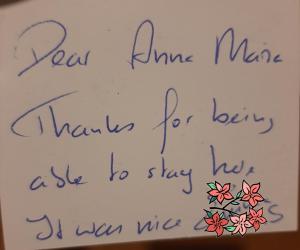 Dear Anna Maria
Thanks for being
able to stay here
It was nice